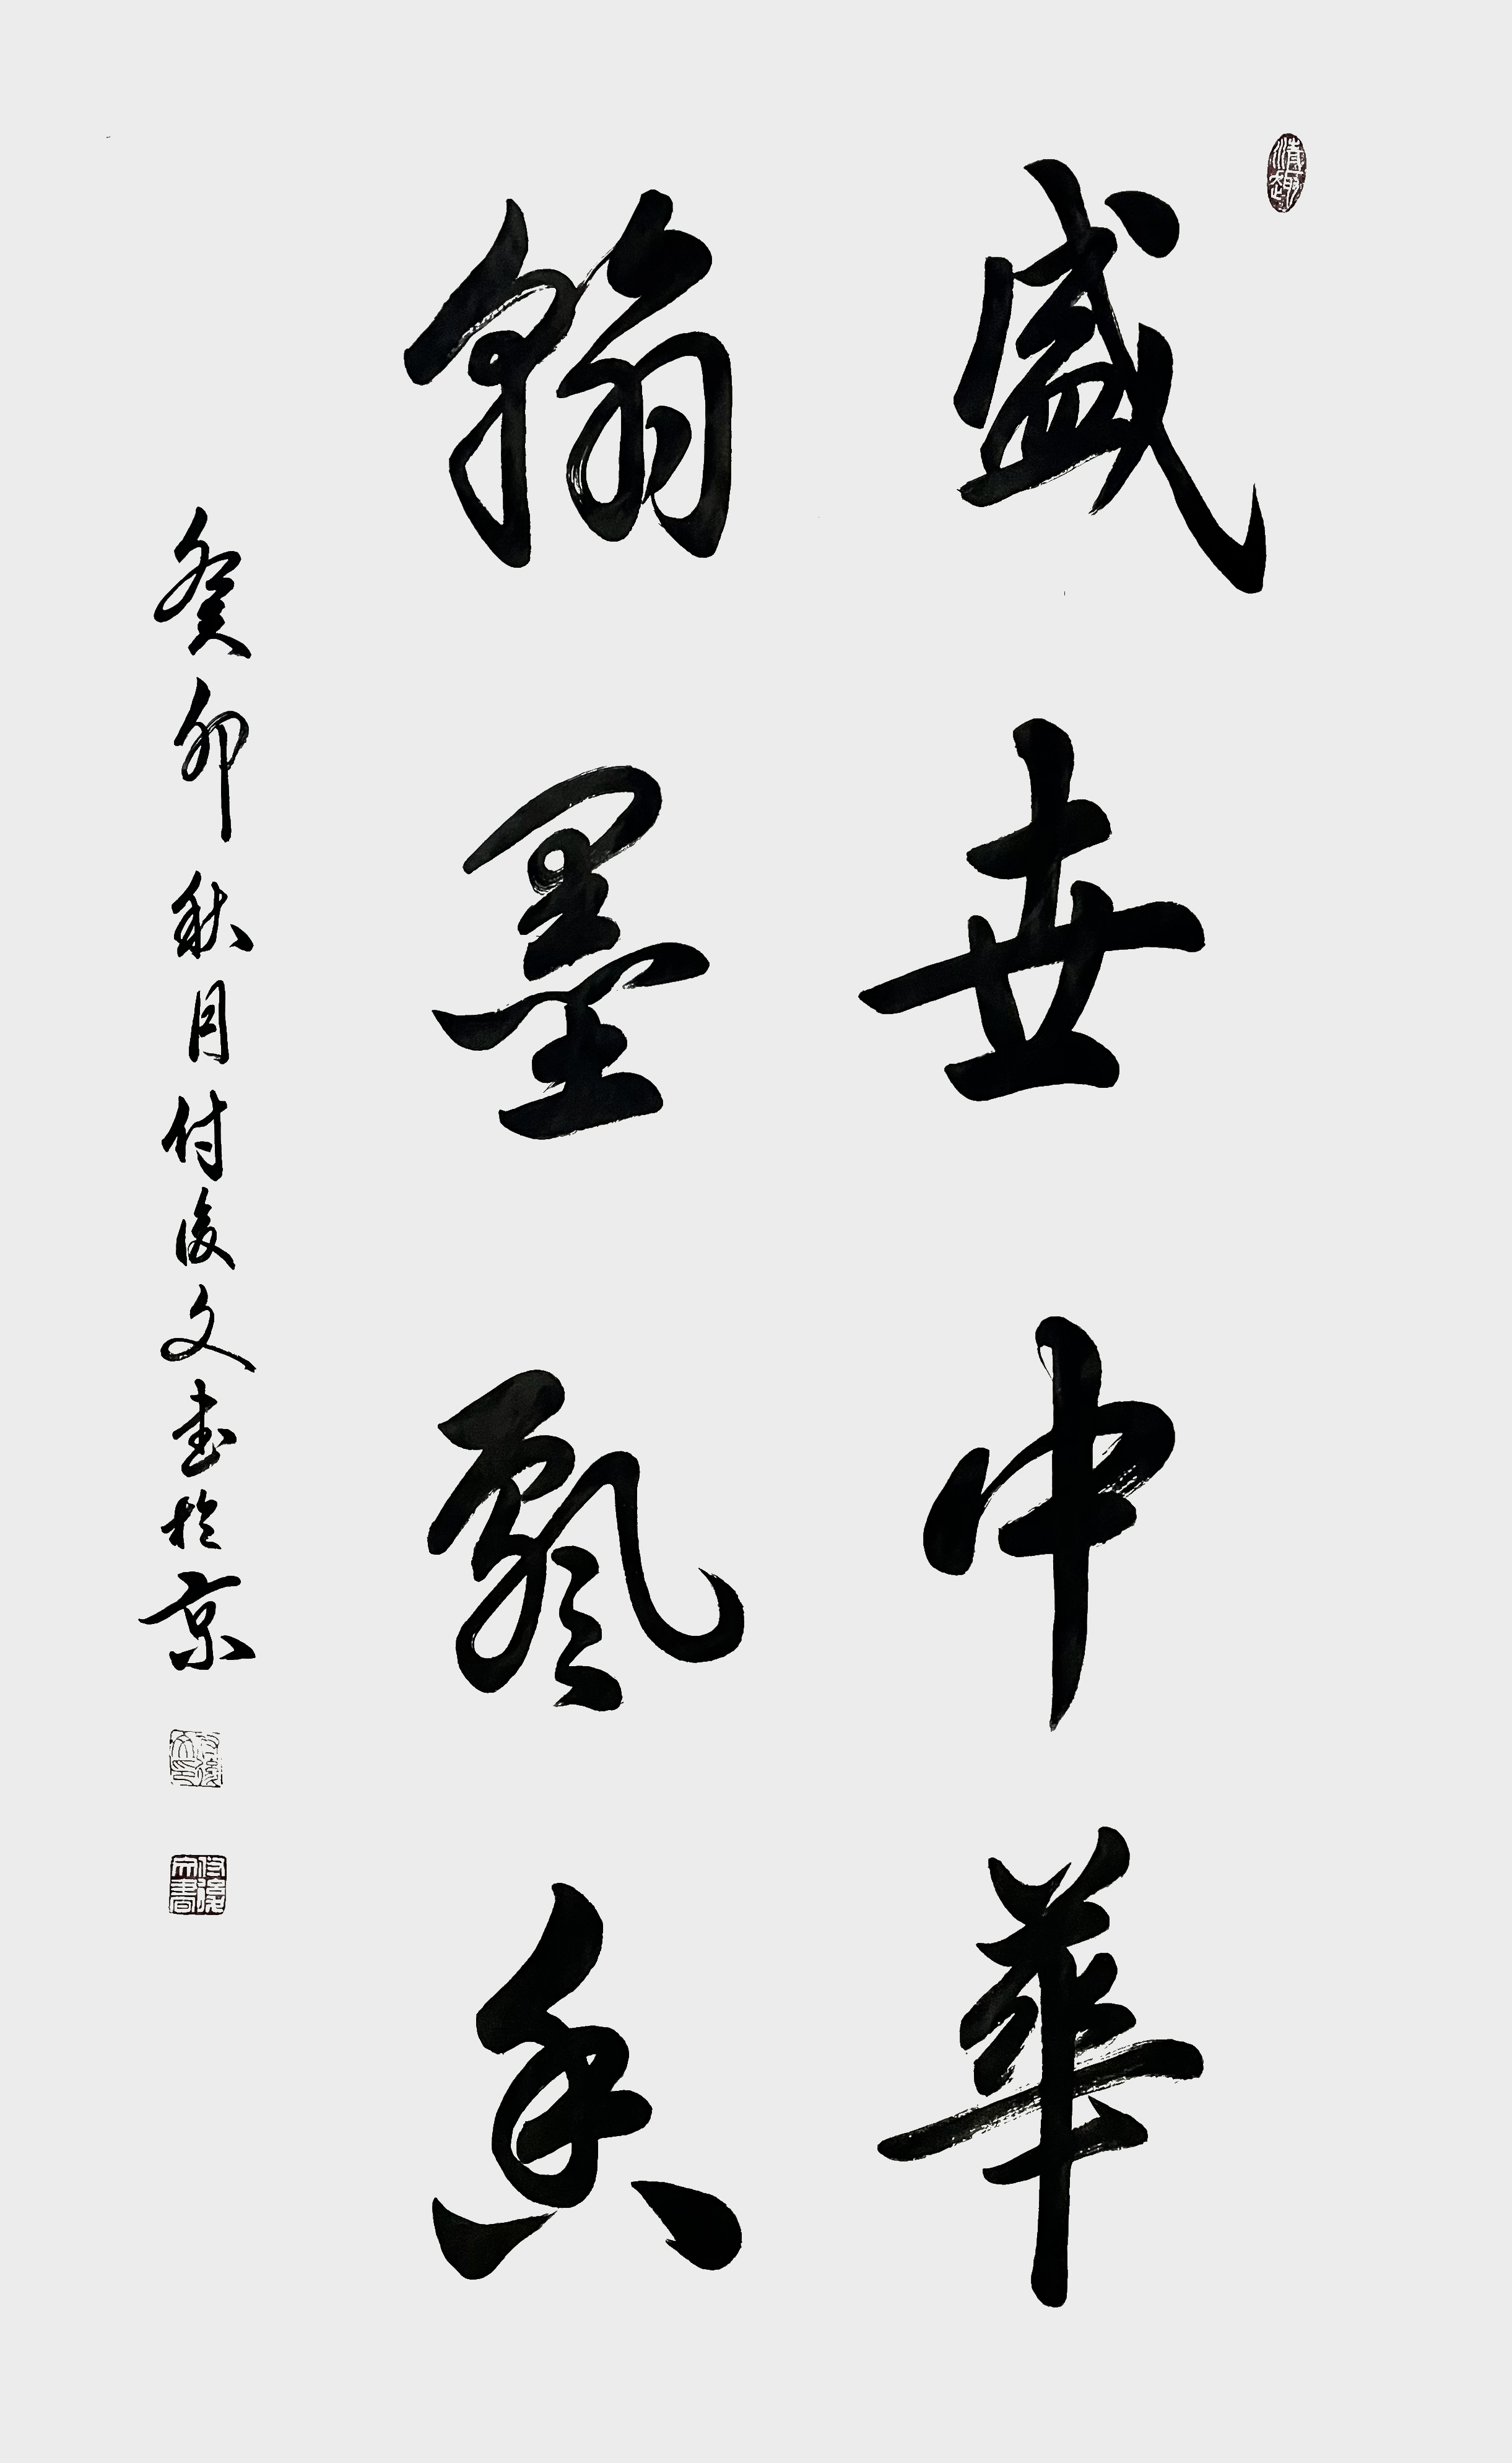 盛世中華
翰墨飄香
癸卯秋月付俊文書於京
清趣